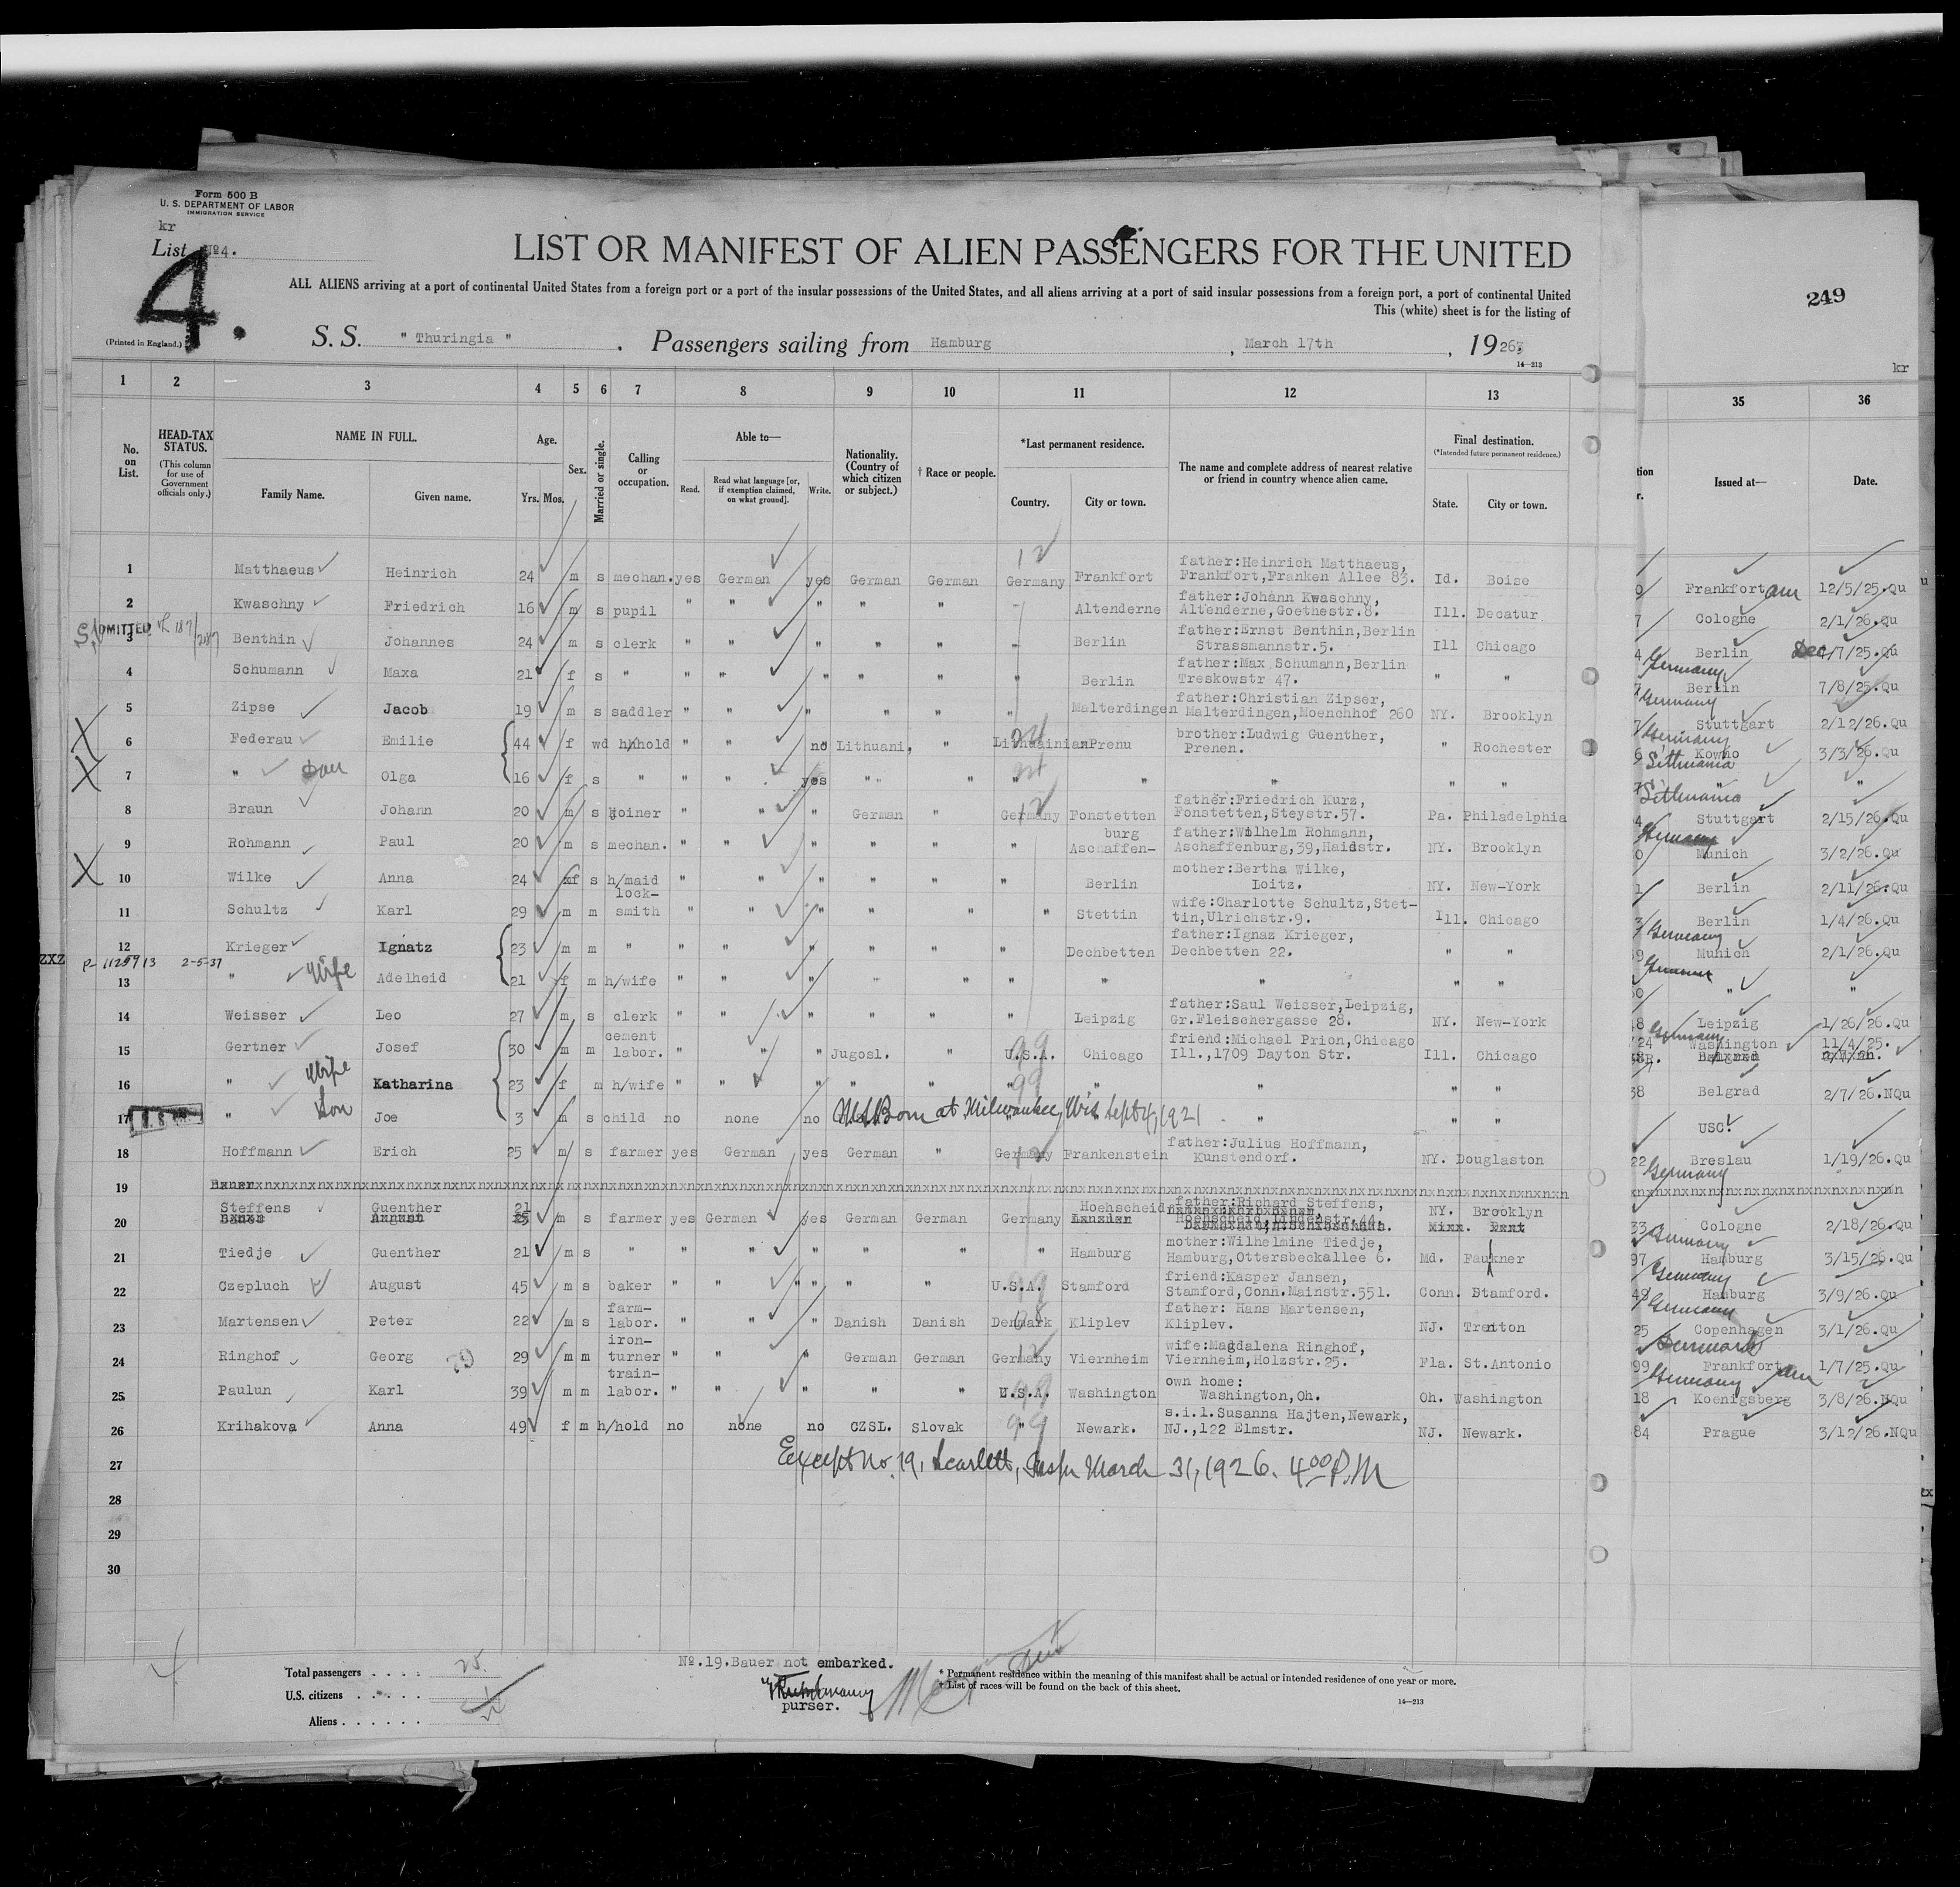 Form 500 B
U. S. DEPARTMENT OF LABOR
IMMIGRATION SERVICE
kr
List No4.
4.
(Printed in England.)
LIST OR MANIFEST OF ALIEN PASSENGERS FOR THE UNITED
ALL ALIENS arriving at a port of continental United States from a foreign port or a port of the insular possessions of the United States, and all aliens arriving at a port of said insular possessions from a foreign port, a port of continental United
This (white) sheet is for the listing of
249
S. S. " Thuringia " . Passengers sailing from Hamburg , March 17th , 1926
14—213
kr
1 2 3 4 5 6 7 8 9 10 11 12 13 35 36
No. on List.
HEAD-TAX STATUS.
(This column for use of Government officials only.)
NAME IN FULL.
Family Name. Given name.
Age.
Yrs. Mos.
Sex.
Married or single.
Calling or occupation.
Able to—
Read. Read what language [or, if exemption claimed, on what ground]. Write.
Nationality. (Country of which citizen or subject.)
† Race or people.
*Last permanent residence.
Country. City or town.
The name and complete address of nearest relative or friend in country whence alien came.
Final destination.
(*Intended future permanent residence.)
State. City or town.
Issued at— Date.
1 Matthaeus Heinrich 24 m s mechan. yes German yes German German Germany Frankfort father:Heinrich Matthaeus, Frankfort,Franken Allee 83. Id. Boise Frankfort am 12/5/25.Qu
2 Kwaschny Friedrich 16 m s pupil " " " " " Altenderne father:Johann Kwaschny, Altenderne,Goethestr.8. Ill. Decatur Cologne 2/1/26.Qu
ADMITTED
3 Benthin Johannes 24 m s clerk " " " " " Berlin father:Ernst Benthin,Berlin Strassmannstr.5. Ill Chicago Berlin Dec 7/25.Qu
4 Schumann Maxa 21 f s " " " " " " " Berlin father:Max Schumann,Berlin Treskowstr 47. " " Germany Berlin 7/8/25.Qu
5 Zipse Jacob 19 m s saddler " " " " " " Malterdingen father:Christian Zipser, Malterdingen,Moenchhof 260 NY. Brooklyn Germany Stuttgart 2/12/26.Qu
X 6 Federau Emilie 44 f wd h/hold " " no Lithuani. " Lithuainian Prenu brother:Ludwig Guenther, Prenen. " Rochester Germany Kowno 3/3/26.Qu
X 7 " Dau Olga 16 f s " " " yes " " " " " " " "
8 Braun Johann 20 m s joiner " " " German " Germany Fonstetten father:Friedrich Kurz, Fonstetten,Steystr.57. Pa. Philadelphia Stuttgart 2/15/26.Qu
9 Rohmann Paul 20 m s mechan. " " " " " " Aschaffen- burg father:Wilhelm Rohmann, Aschaffenburg,39,Haidstr. NY. Brooklyn Munich 3/2/26.Qu
X 10 Wilke Anna 24 f s h/maid " " " " " " Berlin mother:Bertha Wilke, Loitz. NY. New-York Berlin 2/11/26.Qu
11 Schultz Karl 29 m m lock- smith " " " " " " Stettin wife:Charlotte Schultz,Stet- tin,Ulrichstr.9. Ill. Chicago Berlin 1/4/26.Qu
12 Krieger Ignatz 23 m m " " " " " " " Dechbetten father:Ignaz Krieger, Dechbetten 22. " " Germany Munich 2/1/26.Qu
ZXZ 2-5-37
13 " Wife Adelheid 21 f m h/wife " " " " " " " " " " " "
14 Weisser Leo 27 m s clerk " " " " " " Leipzig father:Saul Weisser,Leipzig, Gr.Fleischergasse 28. NY. New-York Leipzig 1/26/26.Qu
15 Gertner Josef 30 m m cement labor. " " " Jugosl. " U.S.A. Chicago friend:Michael Prion,Chicago Ill.,1709 Dayton Str. Ill. Chicago Germany Washington 11/4/25.
16 " Wife Katharina 23 f m h/wife " " " " " " " " " " Belgrad 2/7/26.NQu
17 " Son Joe 3 m s child no none no U.S. Born at Milwaukee, Wis. Sept 4, 1921 " " " USC.
18 Hoffmann Erich 25 m s farmer yes German yes German " Germany Frankenstein father:Julius Hoffmann, Kunstendorf. NY. Douglaston Breslau 1/19/26.Qu
19 Bauer
20 Steffens Guenther 21 m s farmer yes German yes German German Germany Hoehscheid father:Richard Steffens, Hoehscheid,Lindenstr.44. NY. Brooklyn Cologne 2/18/26.Qu
21 Tiedje Guenther 21 m s " " " " " " " Hamburg mother:Wilhelmine Tiedje, Hamburg,Ottersbeckallee 6. Md. Faukner Germany Hamburg 3/15/26.Qu
22 Czepluch August 45 m s baker " " " " " U.S.A. Stamford friend:Kasper Jansen, Stamford,Conn.Mainstr.551. Conn. Stamford. Germany Hamburg 3/9/26.Qu
23 Martensen Peter 22 m s farm- labor. " " " Danish Danish Denmark Kliplev father: Hans Martensen, Kliplev. NJ. Trenton Germany Copenhagen 3/1/26.Qu
24 Ringhof Georg 29 m m iron- turner " " " German German Germany Viernheim wife:Magdalena Ringhof, Viernheim,Holzstr.25. Fla. St.Antonio Denmark Frankfort am 1/7/25.Qu
25 Paulun Karl 39 m m train- labor. " " " " " U.S.A. Washington own home: Washington,Oh. Oh. Washington Germany Koenigsberg 3/8/26.NQu
26 Krihakova Anna 49 f m h/hold no none no CZSL. Slovak " Newark. s.i.l.Susanna Hajten,Newark, NJ.,122 Elmstr. NJ. Newark. Prague 3/12/26.NQu
27 Except No. 19, Scarlett, Insp. March 31, 1926. 4 00 P.M
28
29
30
Total passengers . . . . 25
U.S. citizens . . . . .
Aliens . . . . . .
No.19.Bauer not embarked.
purser.
* Permanent residence within the meaning of this manifest shall be actual or intended residence of one year or more.
† List of races will be found on the back of this sheet.
14—213